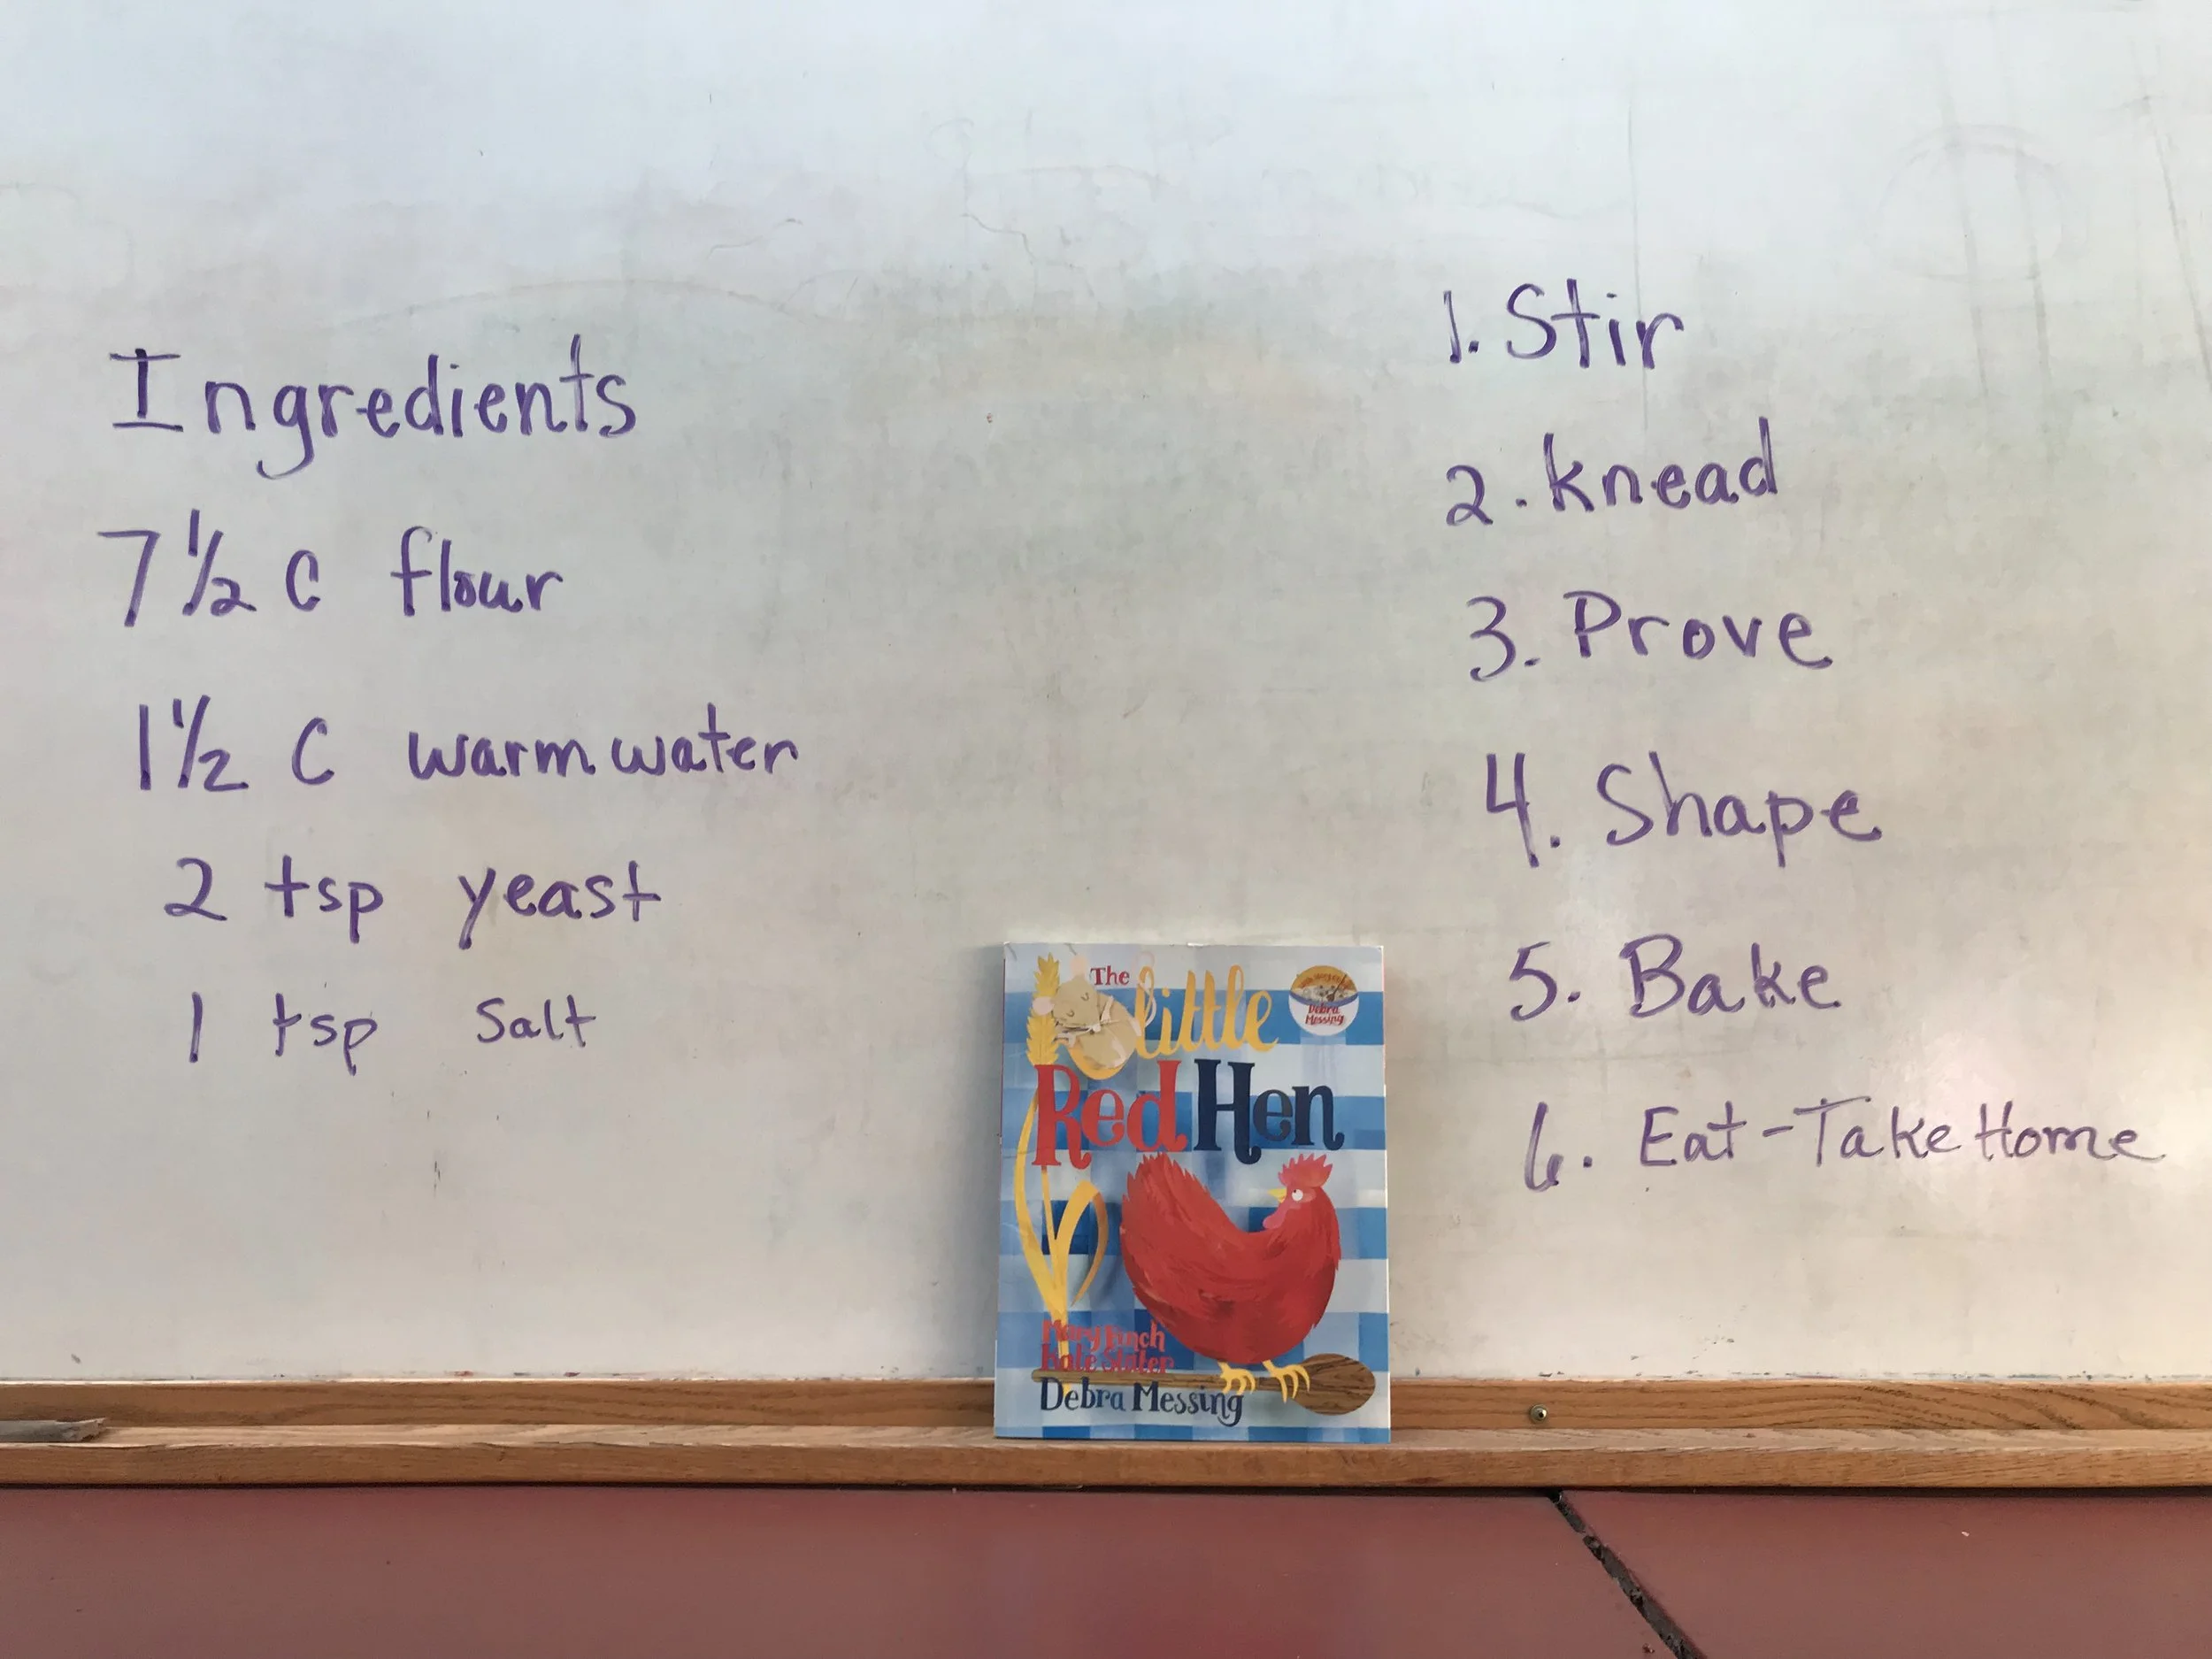 Ingredients
7 1/2 C flour
1 1/2 C warm water
2 tsp yeast
1 tsp Salt
1. Stir
2. Knead
3. Prove
4. Shape
5. Bake
6. Eat - Take Home
The
little
Red Hen
Debra
Messing
Mary Finch
Kate Slater
Debra Messing